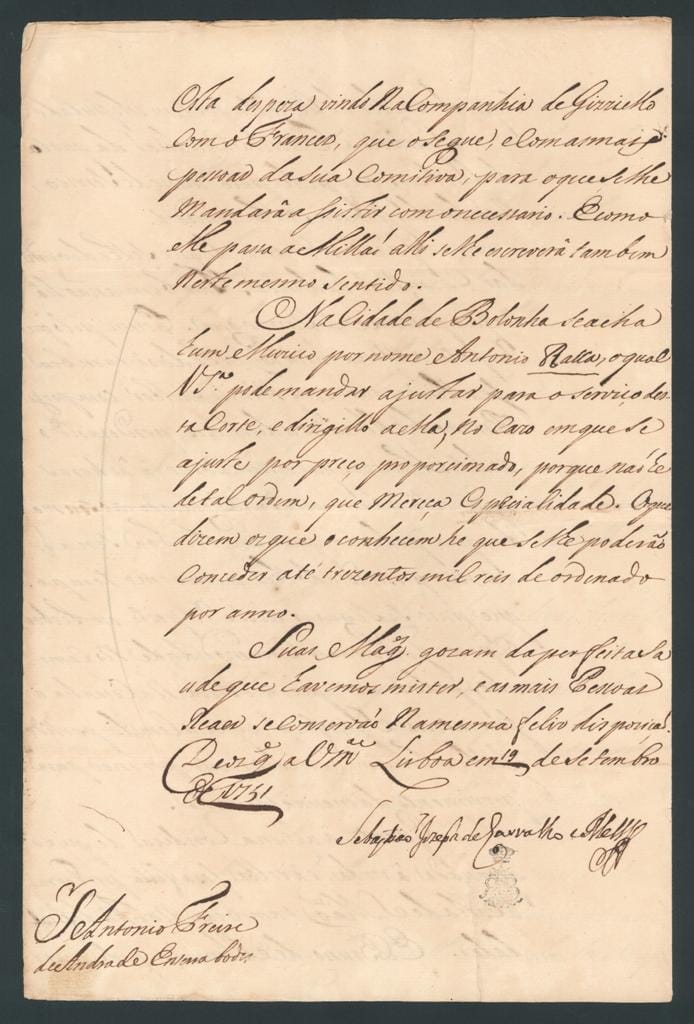 esta despeza vindo na Companhia de Gizziello
com o Francez, que o segue, e com as mais
pessoas da sua Comitiva, para o que se lhe
Mandarâ assistir com o necessario. E como
elle passa a Millaõ alli se lhe escreverâ tambem
neste mesmo sentido.
Na Cidade de Bolonha se acha
hum Muzico por nome Antonio Raaa, o qual
V S.ª pode mandar ajustar para o serviço des-
ta Corte, e dirigillo a ella, no cazo em que se
ajuste por preço proporcionado, porque naõ hé
de tal ordem, que mereça Especialidade. O que
dizem os que o conhecem he que se lhe poderáõ
conceder até trezentos mil reis de ordenado
por anno.
Suas Mag.es gozam da perfeita Sa-
ude que havemos mister, e as mais Pessoas
Reaes se conservaõ na mesma feliz dispoziçaõ.
Deos g.e a V m.ce Lisboa em 19 de Setembro
de 1751
Sebastiaõ Jozeph de Carvalho e Mello
S.r Antonio Freire
de Andrade Enserrabodes